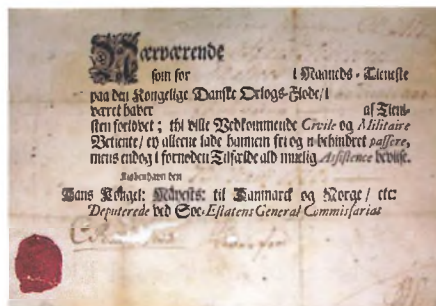 Nærværende
som for i Maaneds-Tieneste
paa den Kongelige Danske Orlogs-Flode/i
været haver af Tieni-
sten forlovet; thi ville Vedkommende Civile og Militaire
Betiente/ ey alleene lade hannem fri og u-behindret passere,
mens endog i fornøden Tilfælde ald muelig Assistence bevise.
Kiøbenhavn den
Hans Kongel: Mayests: til Danmarck og Norge/ etc:
Deputerede ved Soe-Estatens General Commissariat